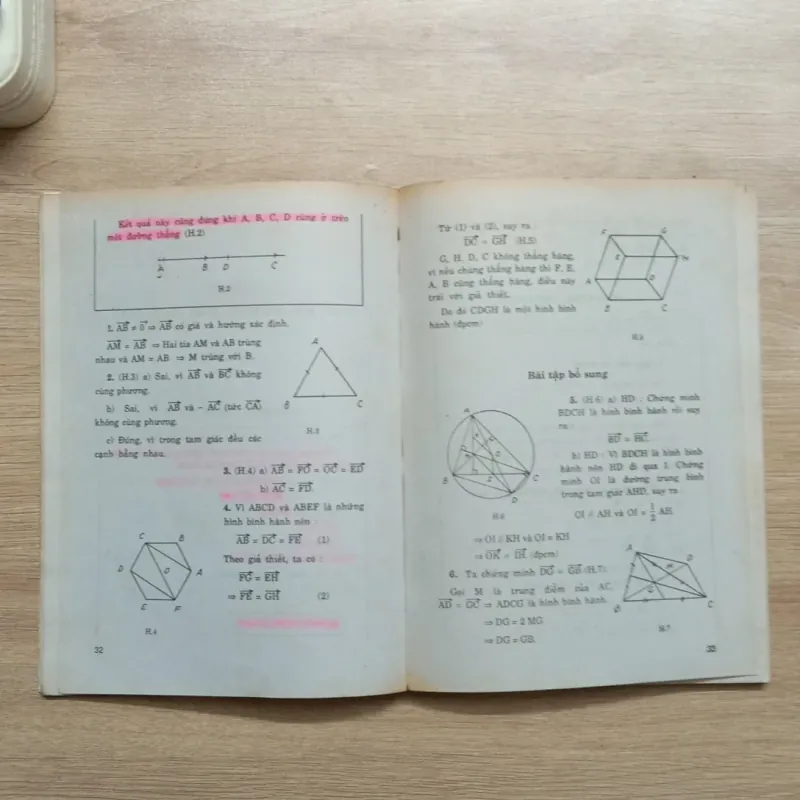 Kết quả này cũng đúng khi A, B, C, D cùng ở trên
một đường thẳng (H.2)
A B D C
H.2
1. AB⃗ ≠ 0⃗ ⇒ AB⃗ có giá và hướng xác định.
AM⃗ = AB⃗ ⇒ Hai tia AM và AB trùng
nhau và AM = AB ⇒ M trùng với B.
2. (H.3) a) Sai, vì AB⃗ và BC⃗ không
cùng phương.
b) Sai, vì AB⃗ và – AC⃗ (tức CA⃗)
không cùng phương.
c) Đúng, vì trong tam giác đều các
cạnh bằng nhau.
A
B C
H.3
3. (H.4) a) AB⃗ = FO⃗ = OC⃗ = ED⃗
b) AC⃗ = FD⃗.
4. Vì ABCD và ABEF là những
hình bình hành nên :
AB⃗ = DC⃗ = FE⃗ (1)
Theo giả thiết, ta có :
FG⃗ = EH⃗
⇒ FE⃗ = GH⃗ (2)
C B
D O A
E F
H.4
32
Từ (1) và (2), suy ra :
DC⃗ = GH⃗ (H.5)
G, H, D, C không thẳng hàng,
vì nếu chúng thẳng hàng thì F, E,
A, B cũng thẳng hàng, điều này
trái với giả thiết.
Do đó CDGH là một hình bình
hành (đpcm)
F G
E H
A D
B C
Bài tập bổ sung
5. (H.6) a) HD : Chứng minh
BDCH là hình bình hành rồi suy
ra :
BD⃗ = HC⃗.
b) HD : Vì BDCH là hình bình
hành nên HD đi qua I. Chứng
minh OI là đường trung bình
trong tam giác AHD, suy ra :
OI // AH và OI = 1/2 AH.
A
B C
D
H.6
⇒ OI // KH và OI = KH
⇒ OK⃗ = IH⃗ (đpcm)
6. Ta chứng minh DG⃗ = GB⃗ (H.7)
Gọi M là trung điểm của AC.
AD⃗ = GC⃗ ⇒ ADCG là hình bình hành.
⇒ DG = 2 MG
⇒ DG = GB.
A D
M
G
B C
H.7
33